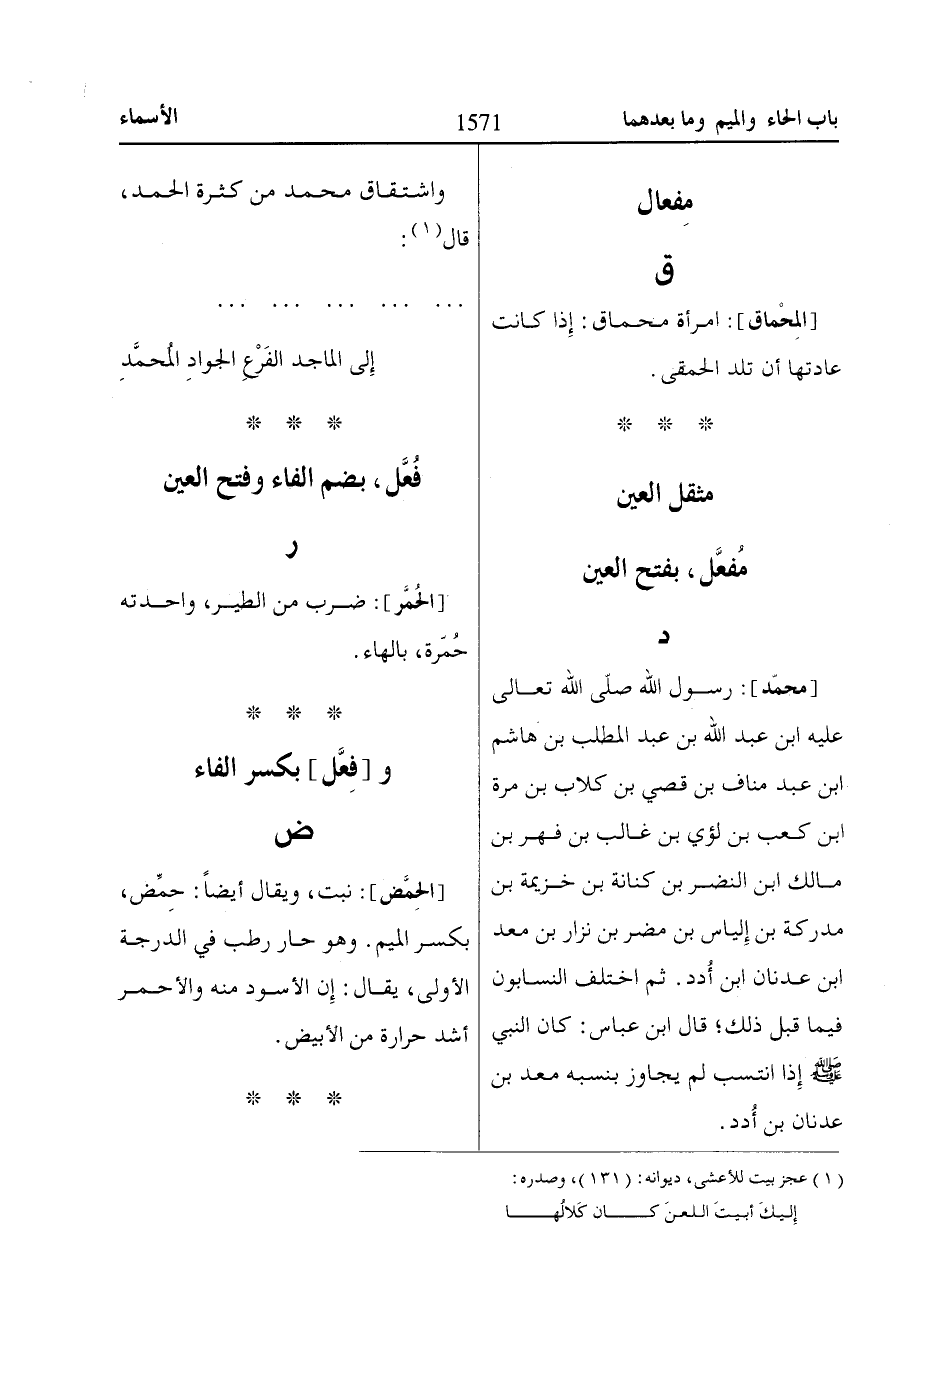 باب الحاء والميم وما بعدهما
1571
الأسماء
مِفعال
ق
[المِحْماق]: امرأة محماق: إذا كانت
عادتها أن تلد الحمقى.
* * *
مثقل العين
مُفعَّل، بفتح العين
د
[محمّد]: رسول الله صلّى الله تعالى
عليه ابن عبد الله بن عبد المطلب بن هاشم
ابن عبد مناف بن قصي بن كلاب بن مرة
ابن كعب بن لؤي بن غالب بن فهر بن
مالك ابن النضر بن كنانة بن خزيمة بن
مدركة بن إلياس بن مضر بن نزار بن معد
ابن عدنان ابن أُدد. ثم اختلف النسابون
فيما قبل ذلك؛ قال ابن عباس: كان النبي
ﷺ إذا انتسب لم يجاوز بنسبه معد بن
عدنان بن أُدد.
واشتقاق محمد من كثرة الحمد،
قال(١):
... ... ... ... ...
إلى الماجد الفَرْعِ الجوادِ المُحمَّدِ
* * *
فُعَّل، بضم الفاء وفتح العين
ر
[الحُمَّر]: ضرب من الطير، واحدته
حُمّرة، بالهاء.
* * *
و [فِعَّل] بكسر الفاء
ض
[الحِمَّض]: نبت، ويقال أيضاً: حمِّض،
بكسر الميم. وهو حار رطب في الدرجة
الأولى، يقال: إن الأسود منه والأحمر
أشد حرارة من الأبيض.
* * *
(١) عجز بيت للأعشى، ديوانه: (١٣١)، وصدره:
إليكَ أبيتَ اللعنَ كان كَلالُها